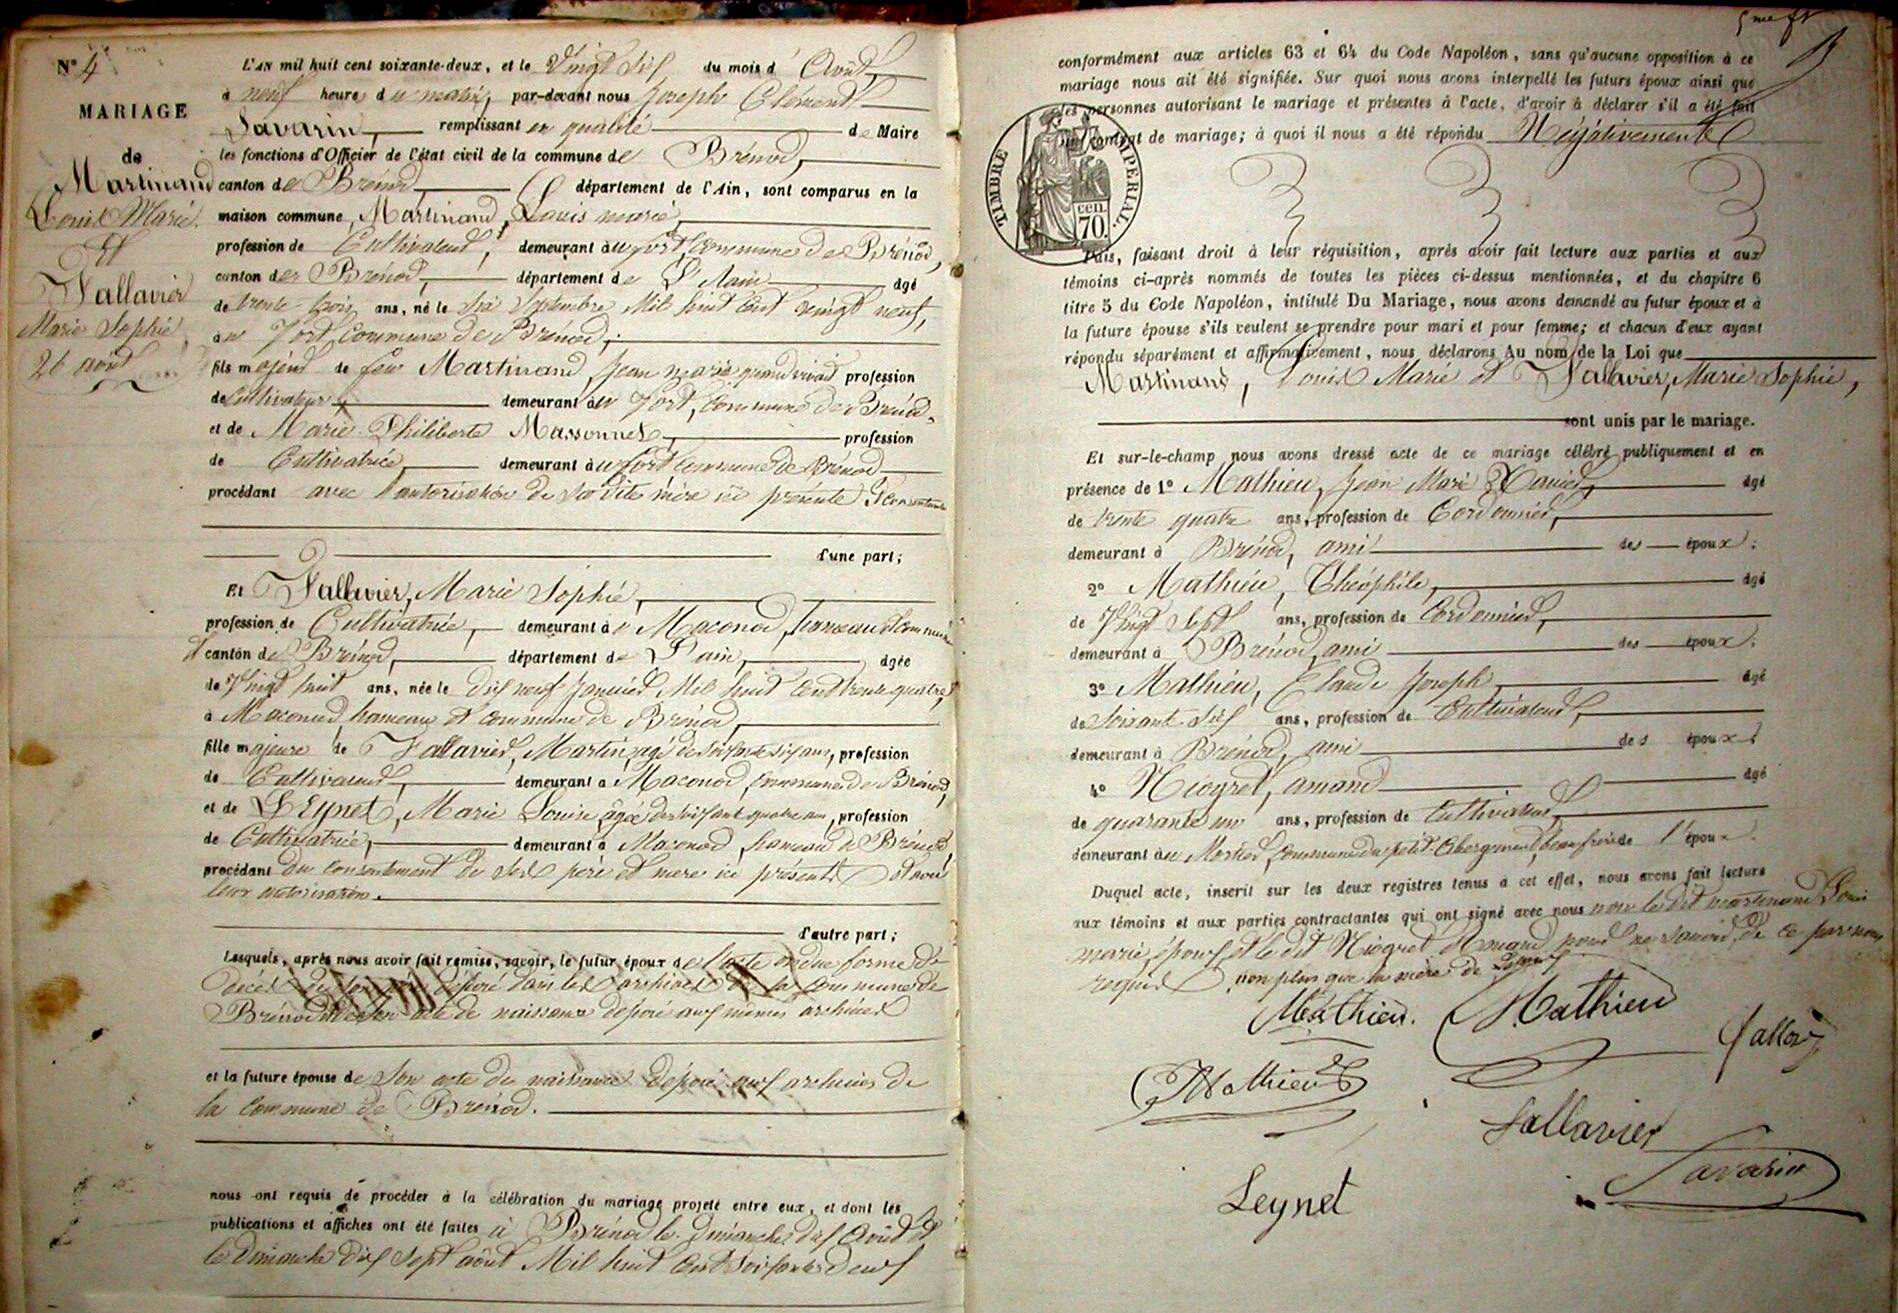 N° 4
MARIAGE
de
Martinand
Louis Marie.
Et
Vallavier
Marie Sophie
26 août
L'AN mil huit cent soixante-deux, et le Vingt Six du mois d' Août,
à neuf heures du matin, par-devant nous Joseph Clément
Savarin, remplissant en qualité de Maire
les fonctions d'Officier de l'état civil de la commune de Brénod,
canton de Brénod, département de l'Ain, sont comparus en la
maison commune, Martinand, Louis marie
profession de Cultivateur, demeurant à Commune de Brénod,
canton de Brénod, département de L'Ain âgé
de trente-trois ans, né le Septembre Mil huit Cent vingt neuf,
Commune de Brénod,
fils majeur de feu Martinand, Jean marie quand vivait profession
de Cultivateur, demeurant Commune de Brénod,
et de Marie Philiberte Massonnet, profession
de Cultivatrice, demeurant Commune de Brénod
procédant avec l'autorisation de sa dite mère ici présente & consentante
d'une part;
Et Vallavier, Marie Sophie,
profession de Cultivatrice, demeurant à Maconod, hameau et commune
et canton de Brénod, département de L'ain, âgée
de Vingt huit ans, née le dix neuf Janvier Mil huit Cent trente quatre,
à Maconod hameau et commune de Brénod,
fille majeure de Vallavier, Martin, âgé de soixante six ans, profession
de Cultivateur, demeurant à Maconod, commune de Brénod,
et de LEynet, Marie Louise, âgée de soixante quatre ans, profession
de Cultivatrice, demeurant à Maconod, hameau de Brénod
procédant du consentement de ses père et mère ici présents et avec
leur autorisation.
d'autre part;
Lesquels, après nous avoir fait remise, savoir, le futur époux de l'acte en due forme de
décès de son déposé dans les archives de la commune de
Brénod et de son acte de naissance déposé aux mêmes archives
et la future épouse de son acte de naissance déposé aux archives de
la commune de Brénod.
nous ont requis de procéder à la célébration du mariage projeté entre eux, et dont les
publications et affiches ont été faites à Brénod le Dimanche dix Août et
le dimanche dix sept août Mil huit Cent soixante deux
5me
conformément aux articles 63 et 64 du Code Napoléon, sans qu'aucune opposition à ce
mariage nous ait été signifiée. Sur quoi nous avons interpellé les futurs époux ainsi que
les personnes autorisant le mariage et présentes à l'acte, d'avoir à déclarer s'il a été fait
un contrat de mariage; à quoi il nous a été répondu Négativement
TIMBRE IMPÉRIAL.
cen.
70.
Puis, faisant droit à leur réquisition, après avoir fait lecture aux parties et aux
témoins ci-après nommés de toutes les pièces ci-dessus mentionnées, et du chapitre 6
titre 5 du Code Napoléon, intitulé Du Mariage, nous avons demandé au futur époux et à
la future épouse s'ils veulent se prendre pour mari et pour femme; et chacun d'eux ayant
répondu séparément et affirmativement, nous déclarons Au nom de la Loi que
Martinand, Louis Marie et Vallavier, Marie Sophie,
sont unis par le mariage.
Et sur-le-champ nous avons dressé acte de ce mariage célébré publiquement et en
présence de 1° Mathieu, Jean Marie Xavier, âgé
de trente quatre ans, profession de Cordonnier,
demeurant à Brénod, ami des époux;
2° Mathieu, Théophile, âgé
de Vingt Sept ans, profession de Cordonnier,
demeurant à Brénod, ami des époux;
3° Mathieu, Claude Joseph, âgé
de Soixante Six ans, profession de Cultivateur,
demeurant à Brénod, ami des époux;
4° Niogret, Amand âgé
de quarante un ans, profession de Cultivateur,
demeurant commune du petit Abergement, beau frère de l'époux.
Duquel acte, inscrit sur les deux registres tenus à cet effet, nous avons fait lecture
aux témoins et aux parties contractantes qui ont signé avec nous non le dit martinand Louis
marie époux et le dit Niogret Amand pour ne savoir, de ce par nous
requis non plus que la mère de l'époux
Mathieu. Mathieu
Vallavier
Mathieu
Vallavier
Savarin
Leynet